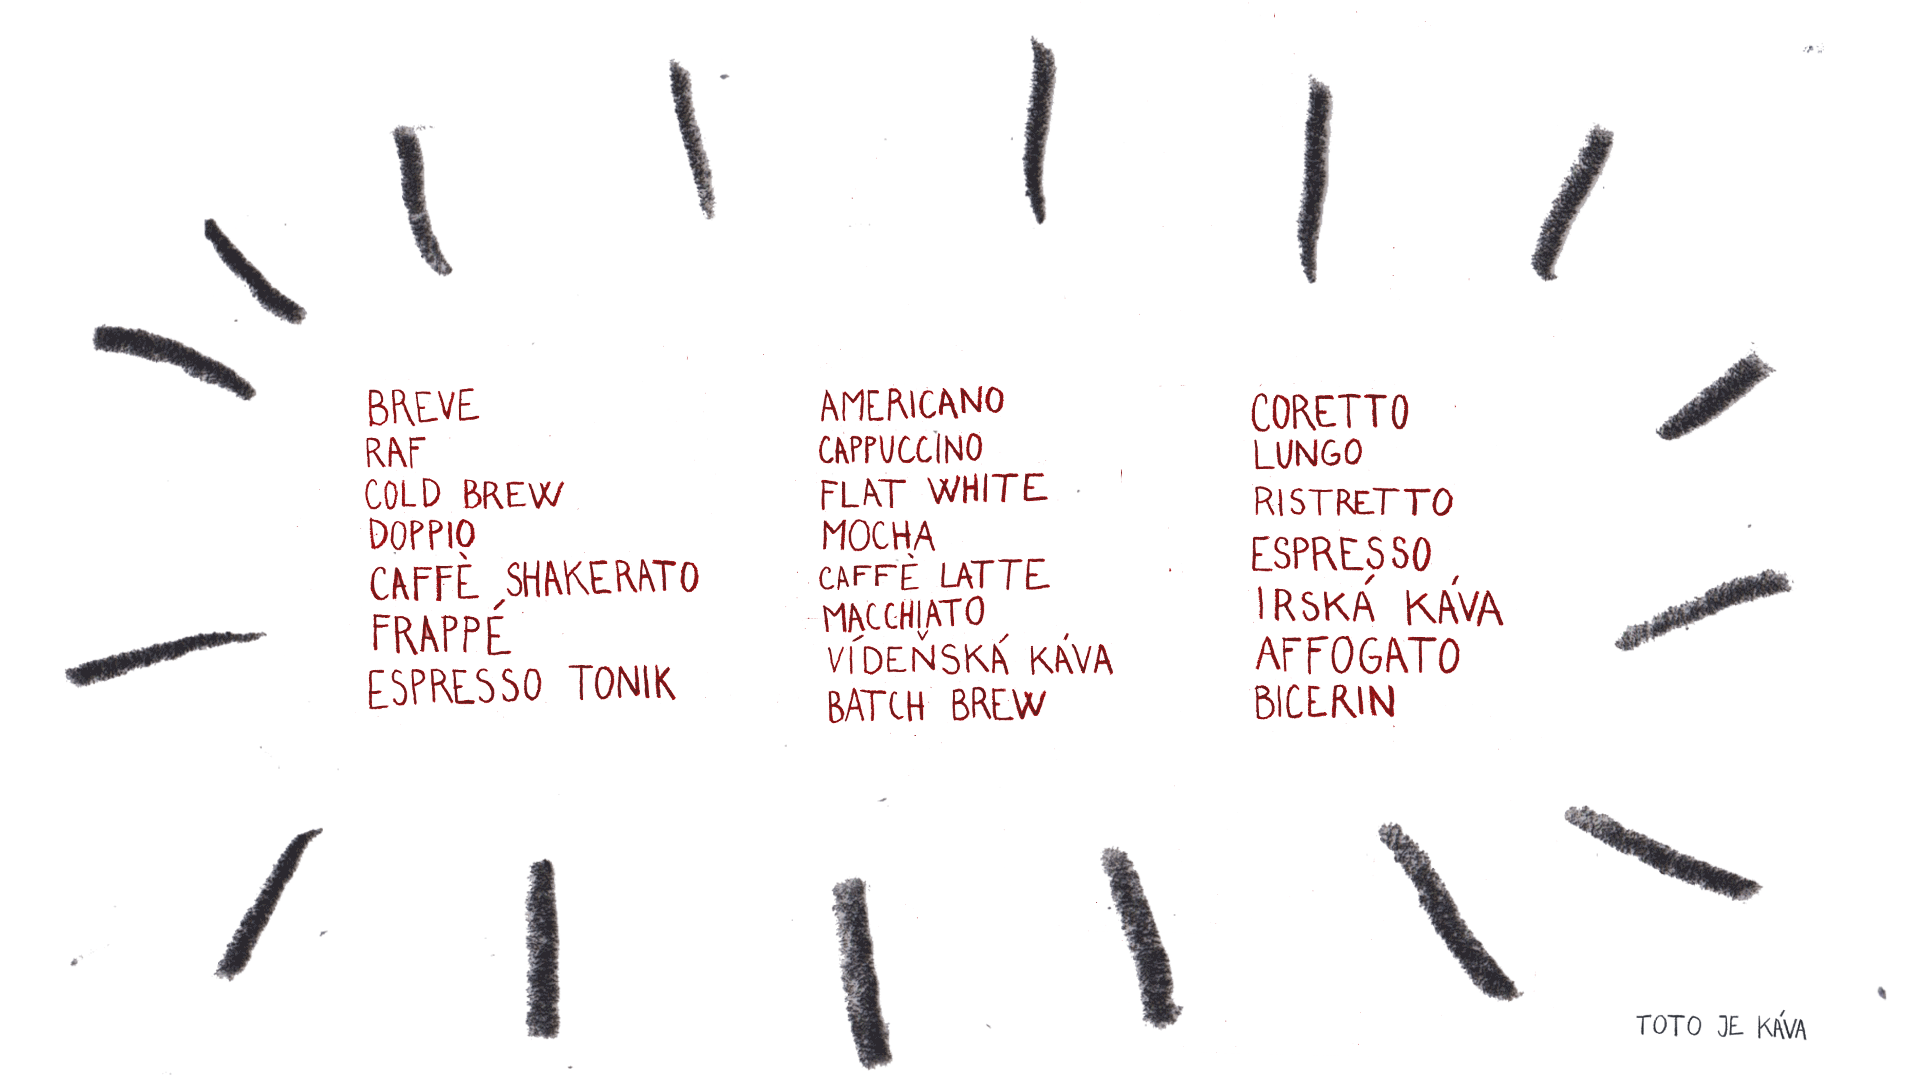 BREVE
RAF
COLD BREW
DOPPIO
CAFFÈ SHAKERATO
FRAPPÉ
ESPRESSO TONIK
AMERICANO
CAPPUCCINO
FLAT WHITE
MOCHA
CAFFÈ LATTE
MACCHIATO
VÍDEŇSKÁ KÁVA
BATCH BREW
CORETTO
LUNGO
RISTRETTO
ESPRESSO
IRSKÁ KÁVA
AFFOGATO
BICERIN
TOTO JE KÁVA